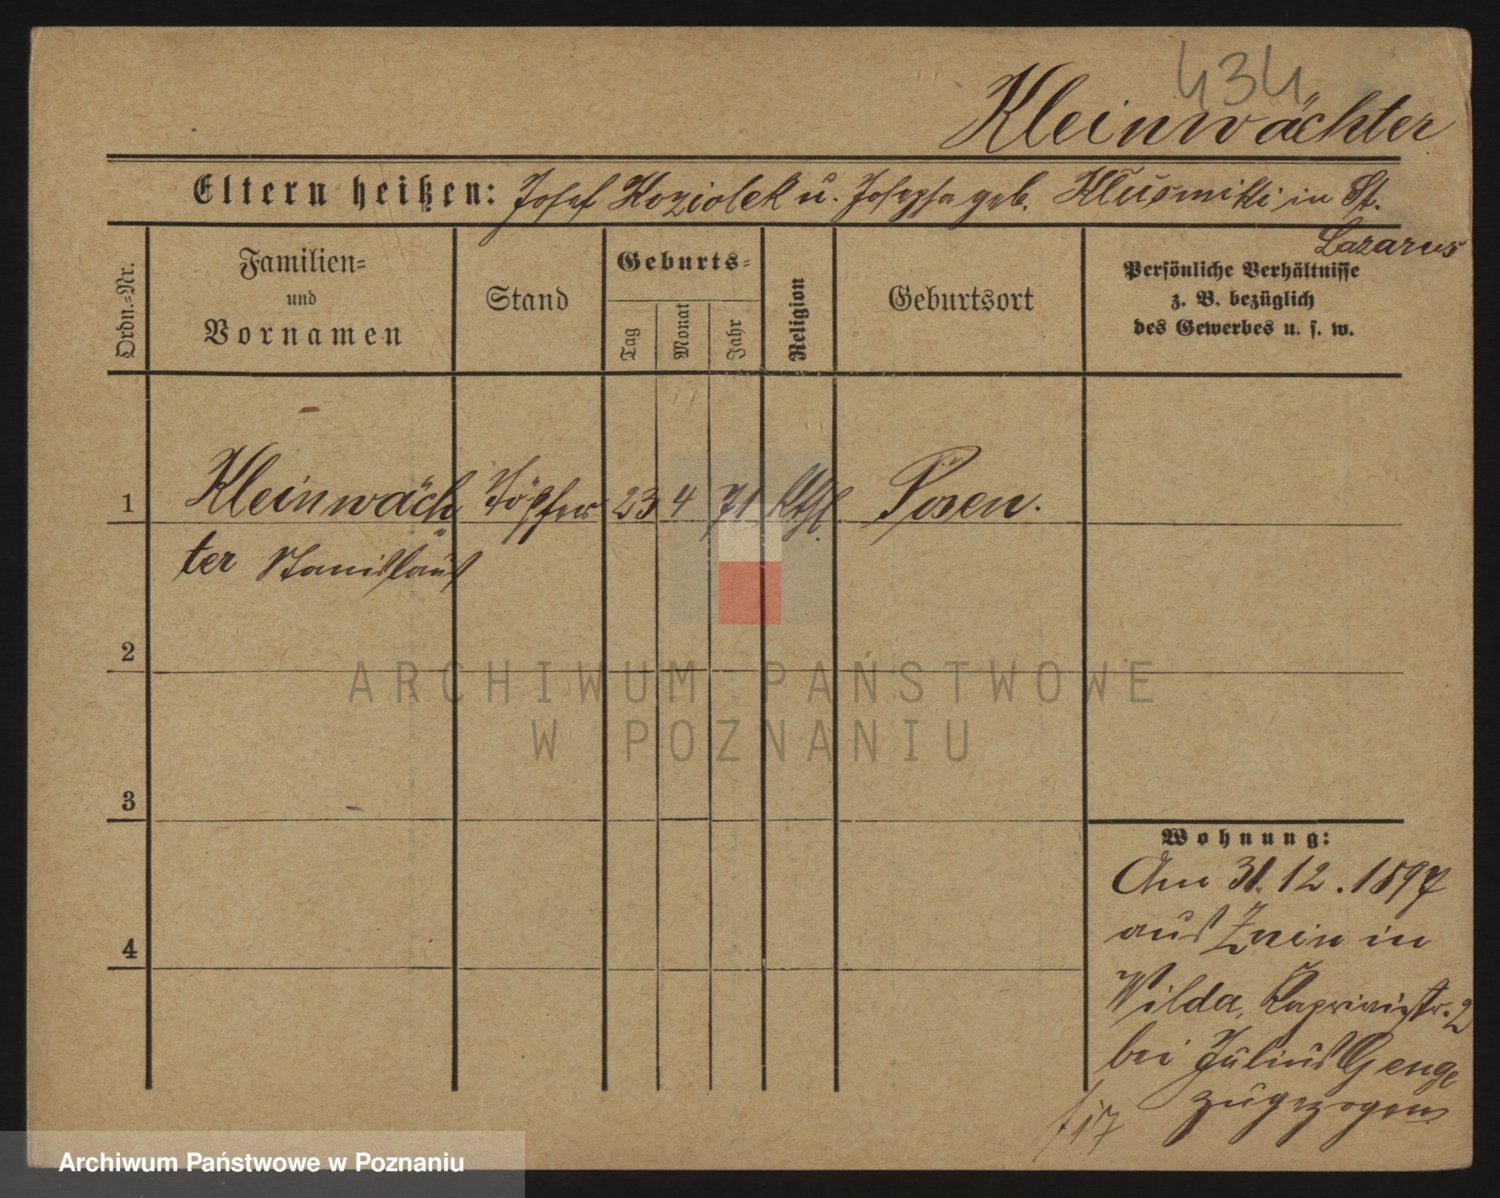 434
Kleinwächter
Eltern heißen: Josef Koziolek u. Josepha geb. in St.
Lazarus
Ordn.-Nr.
Familien-
und
Vornamen
Stand
Geburts-
Tag
Monat
Jahr
Religion
Geburtsort
Persönliche Verhältnisse
z. B. bezüglich
des Gewerbes u. s. w.
1 Kleinwäch Töpfer 23 4 71 kthl. Posen.
ter Stanislaus
2
3
4
Wohnung:
Am 31.12.1897
aus Znin in
Wilda, Caprivistr. 2
bei Julius Genge
zugezogen
f 17
ARCHIWUM PAŃSTWOWE
W POZNANIU
Archiwum Państwowe w Poznaniu